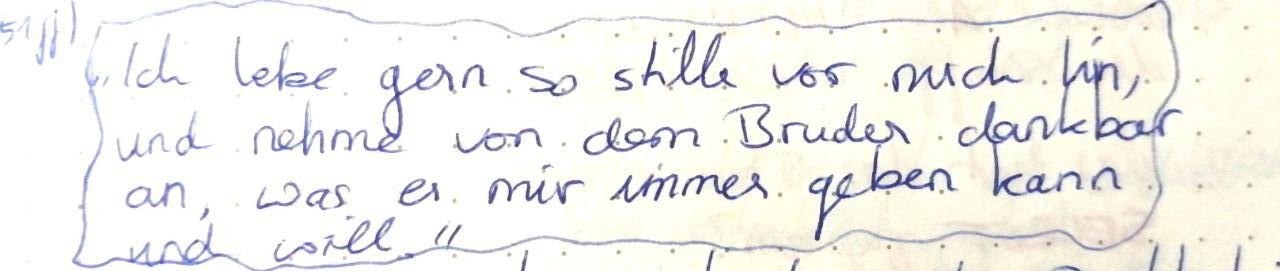 51 ff)
„Ich lebe gern so stille vor mich hin,
und nehme von dem Bruder dankbar
an, was er mir immer geben kann
und will."